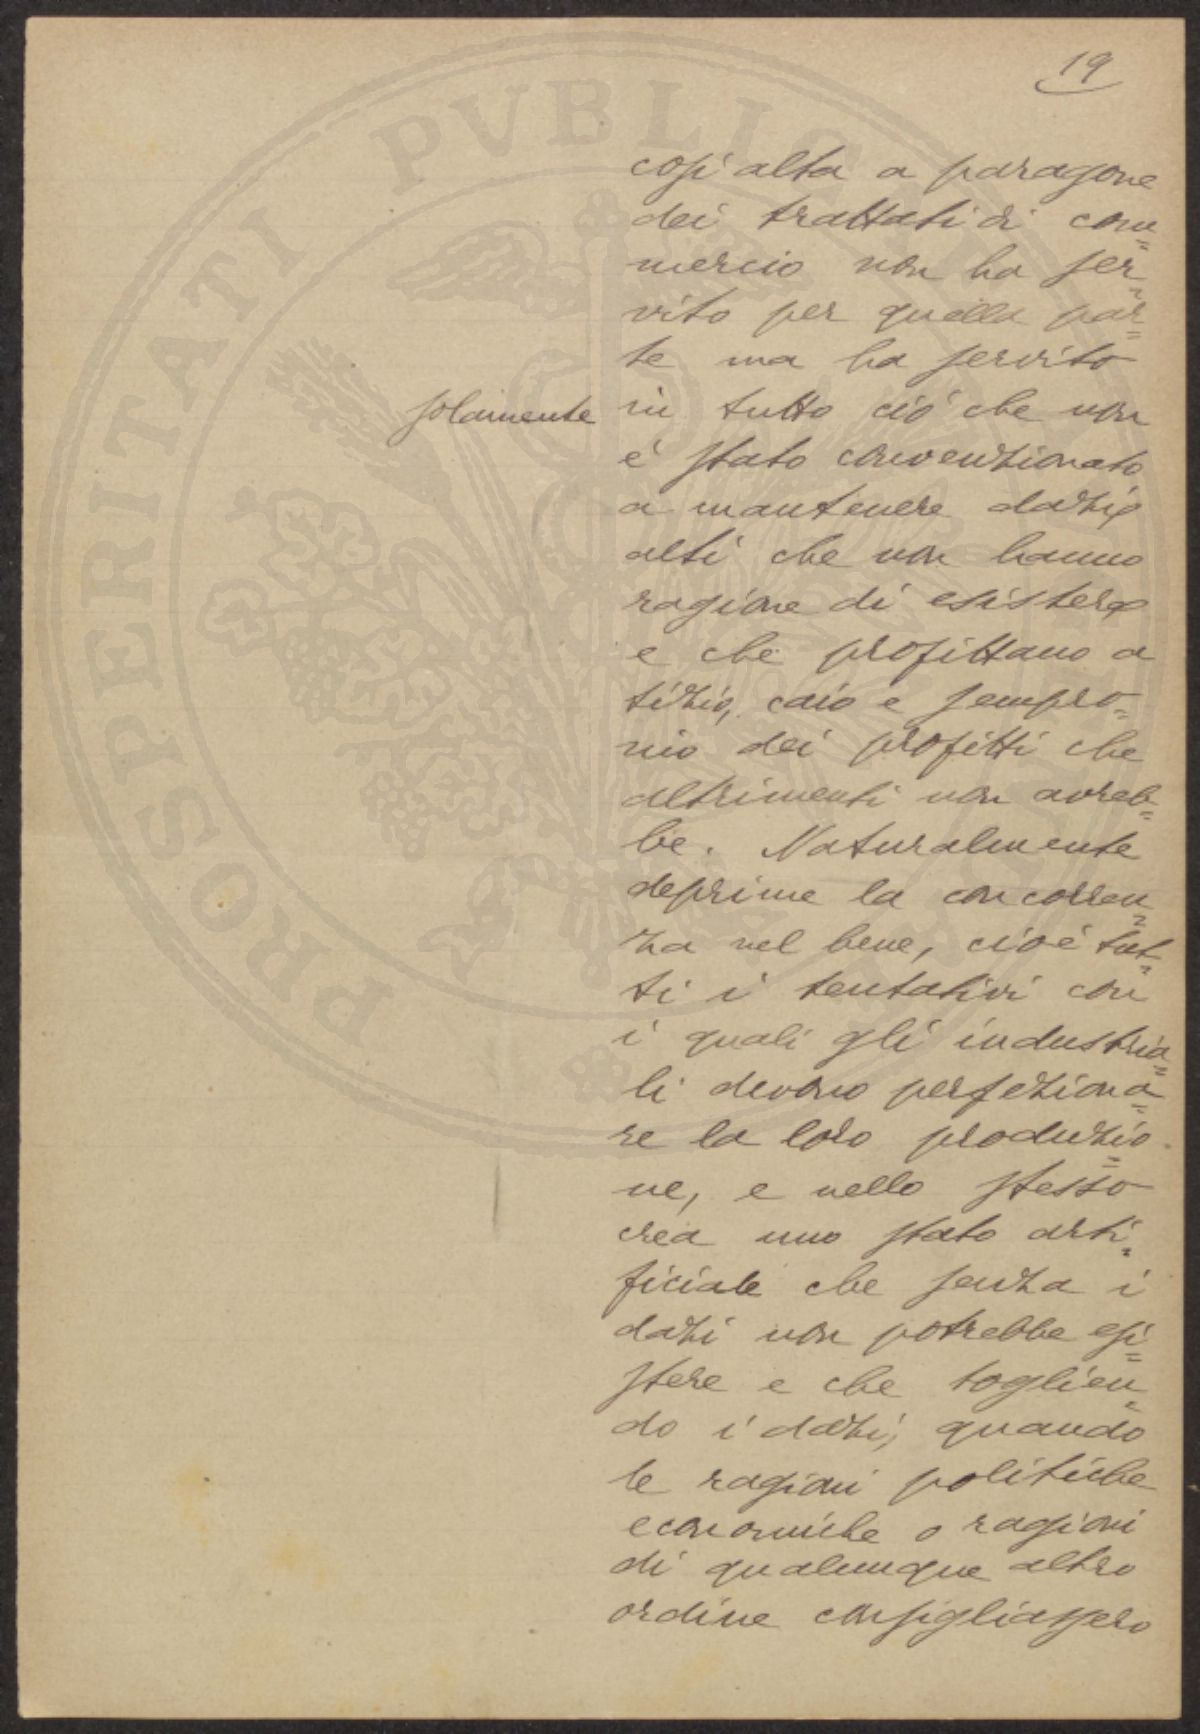 19
così alta a paragone
dei trattati di com=
mercio non ha ser=
vito per quella par=
te ma ha servito
solamente in tutto ciò che non
è stato convenzionato
a mantenere dazii
alti che non hanno
ragione di esistere
e che profittano a
tizio, caio e sempro=
nio dei profitti che
altrimenti non avreb=
be. Naturalmente
deprime la concorren=
za nel bene, cioè tut=
ti i tentativi con
i quali gli industria=
li devono perfeziona=
re la loro produzio=
ne, e nello stesso
crea uno stato arti=
ficiale che senza i
dazi non potrebbe esi=
stere e che toglien=
do i dazi, quando
le ragioni politiche
economiche o ragioni
di qualunque altro
ordine consigliassero
PROSPERITATI PVBLIC